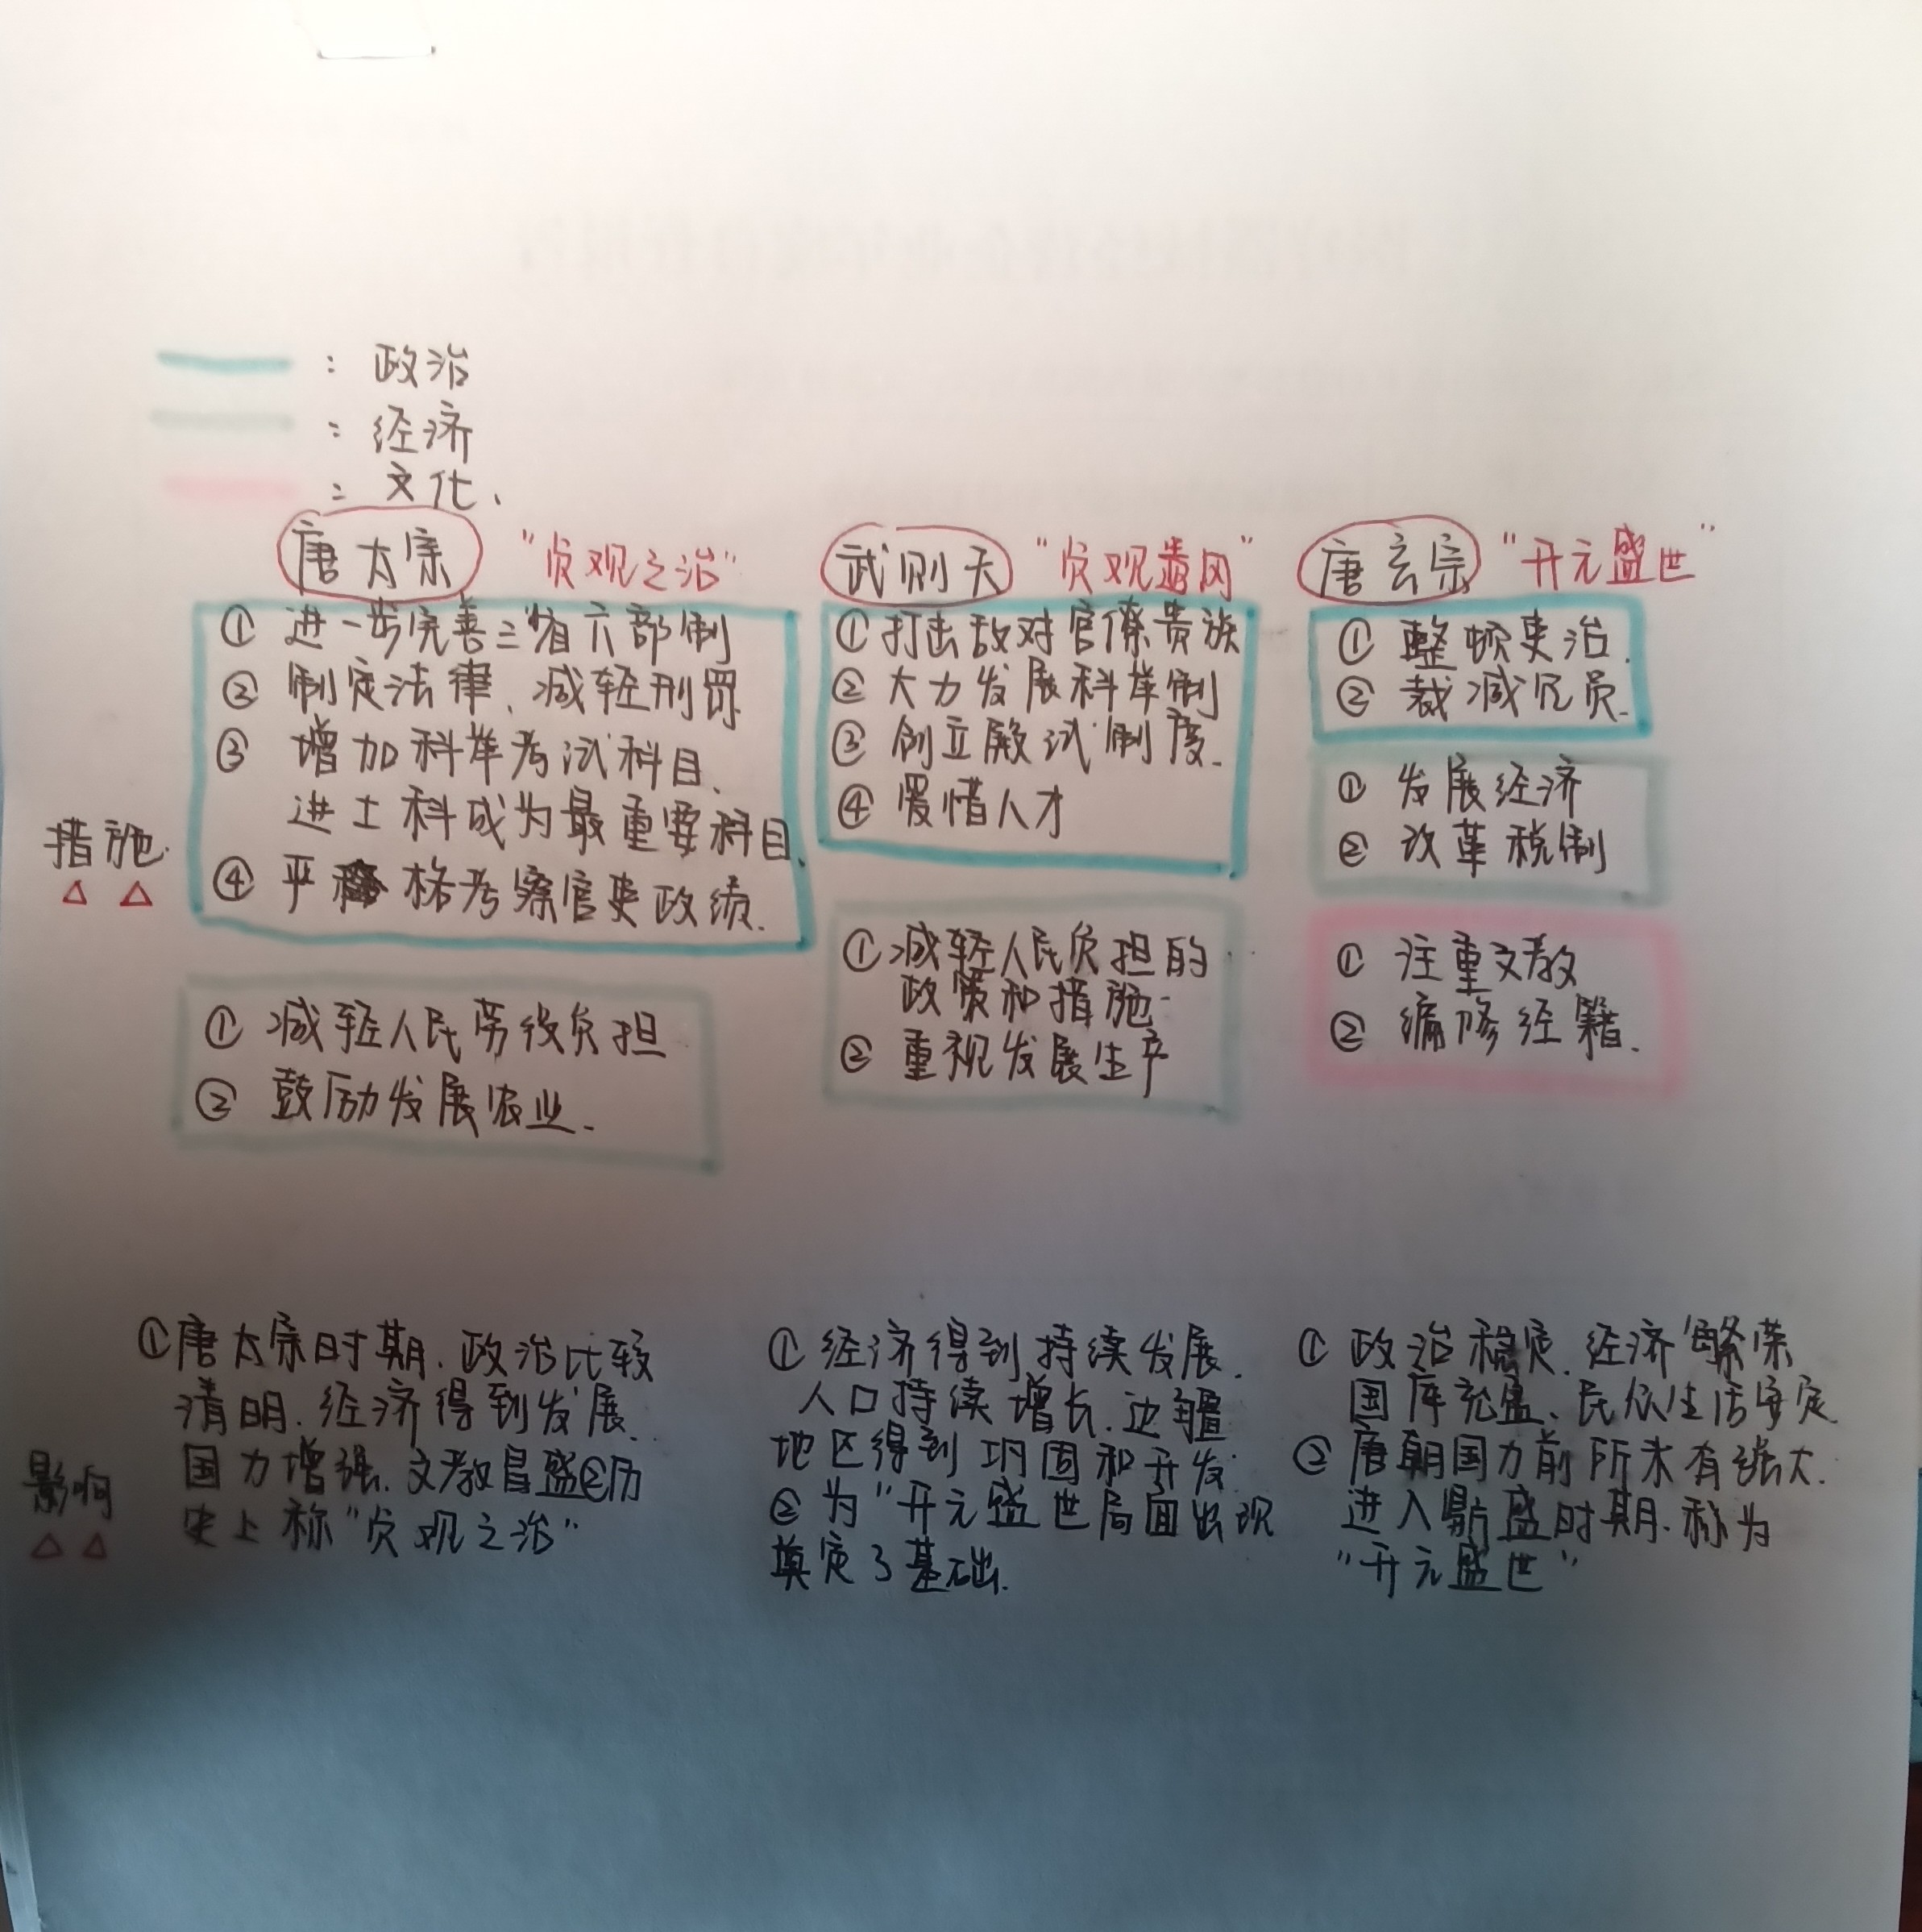 ：政治
：经济
：文化、
唐太宗 "贞观之治"
① 进一步完善三省六部制
② 制定法律、减轻刑罚
③ 增加科举考试科目、
进士科成为最重要科目、
④ 严格考察官吏政绩.
① 减轻人民劳役负担
② 鼓励发展农业.
武则天 "贞观遗风"
① 打击敌对官僚贵族
② 大力发展科举制
③ 创立殿试制度.
④ 爱惜人才
① 减轻人民负担的
政策和措施.
② 重视发展生产
唐玄宗 "开元盛世"
① 整顿吏治.
② 裁减冗员.
① 发展经济
② 改革税制
① 注重文教
② 编修经籍.
措施.
△ △
① 唐太宗时期.政治比较
清明.经济得到发展.
国力增强.文教昌盛②历
史上称"贞观之治"
① 经济得到持续发展.
人口持续增长.边疆
地区得到巩固和开发.
② 为"开元盛世局面出现
奠定了基础.
① 政治稳定.经济繁荣
国库充盈、民众生活安定.
② 唐朝国力前所未有强大.
进入鼎盛时期.称为
"开元盛世"
影响
△ △